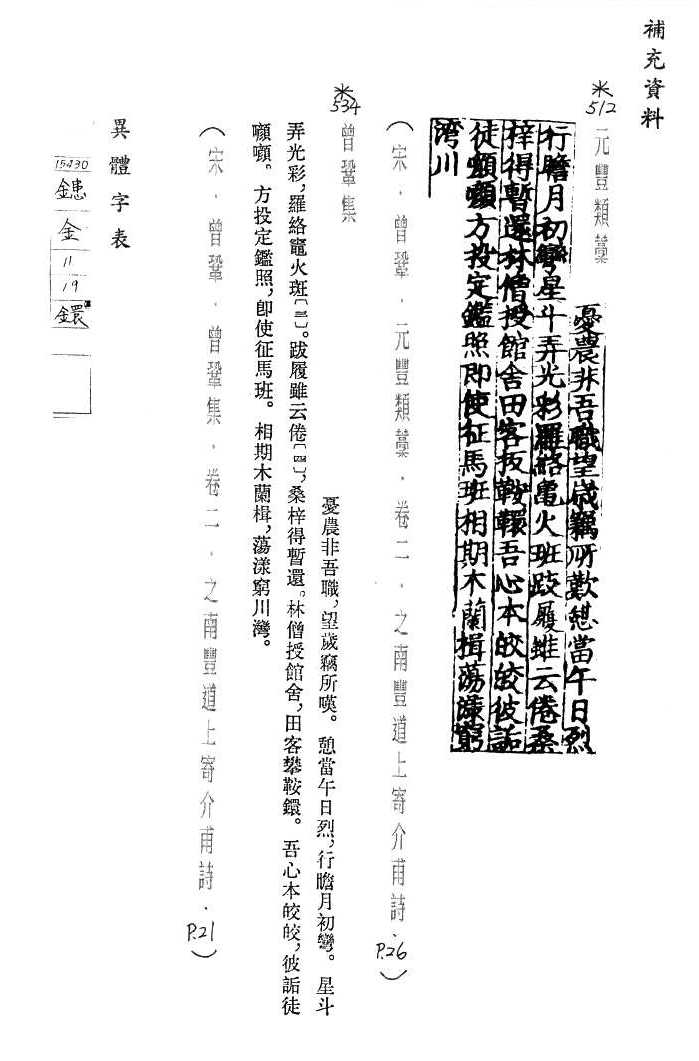 補充資料
※
512
元豐類藁
憂農非吾職望歲竊所歎憩當午日烈
行瞻月初彎星斗弄光彩羅絡黿火班跋履雖云倦桑
梓得暫還林僧授館舍田客扳鞍轘吾心本皎皎彼詬
徒嚬嚬方投定鑑照即使征馬班相期木蘭楫蕩漾窮
灣川
(宋．曾鞏．元豐類藁．卷二．之南豐道上寄介甫詩．P.26)
※
534
曾鞏集
憂農非吾職，望歲竊所嘆。憩當午日烈，行瞻月初彎。星斗
弄光彩，羅絡竈火斑〔三〕。跋履雖云倦〔四〕，桑梓得暫還。林僧授館舍，田客攀鞍鐶。吾心本皎皎，彼詬徒
嚬嚬。方投定鑑照，卽使征馬班。相期木蘭楫，蕩漾窮川灣。
(宋．曾鞏．曾鞏集．卷二．之南豐道上寄介甫詩．P.21)
異體字表
15430
金
11
19
鐶